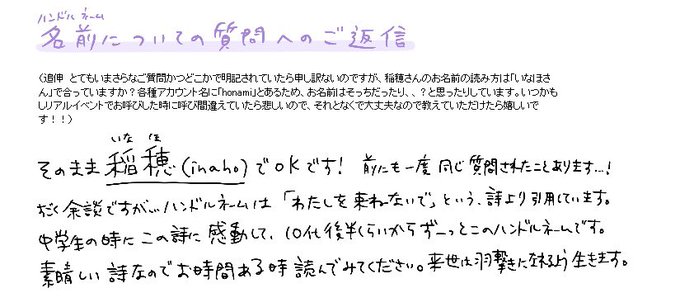 ハンドルネーム
名前についての質問へのご返信
（追伸　とてもいまさらなご質問かつどこかで明記されていたら申し訳ないのですが、稲穂さんのお名前の読み方は「いなほさ
ん」で合っていますか？各種アカウント名に「honami」とあるため、お名前はそっちだったり、、？と思ったりしています。いつかも
しリアルイベントでお呼びした時に呼び間違えていたら悲しいので、それとなくで大丈夫なので教えていただけたら嬉しいで
す！！）
いな ほ
そのまま 稲穂 (inaho) でOKです！ 前にも一度 同じ質問されたことあります…！
余談ですが…ハンドルネームは「わたしを束ねないで」という、詩より引用しています。
中学生の時にこの詩に感動して、10代後半くらいからずーっとこのハンドルネームです。
素晴しい詩なのでお時間ある時読んでみてください。来世は羽撃きになれるよう生きます。